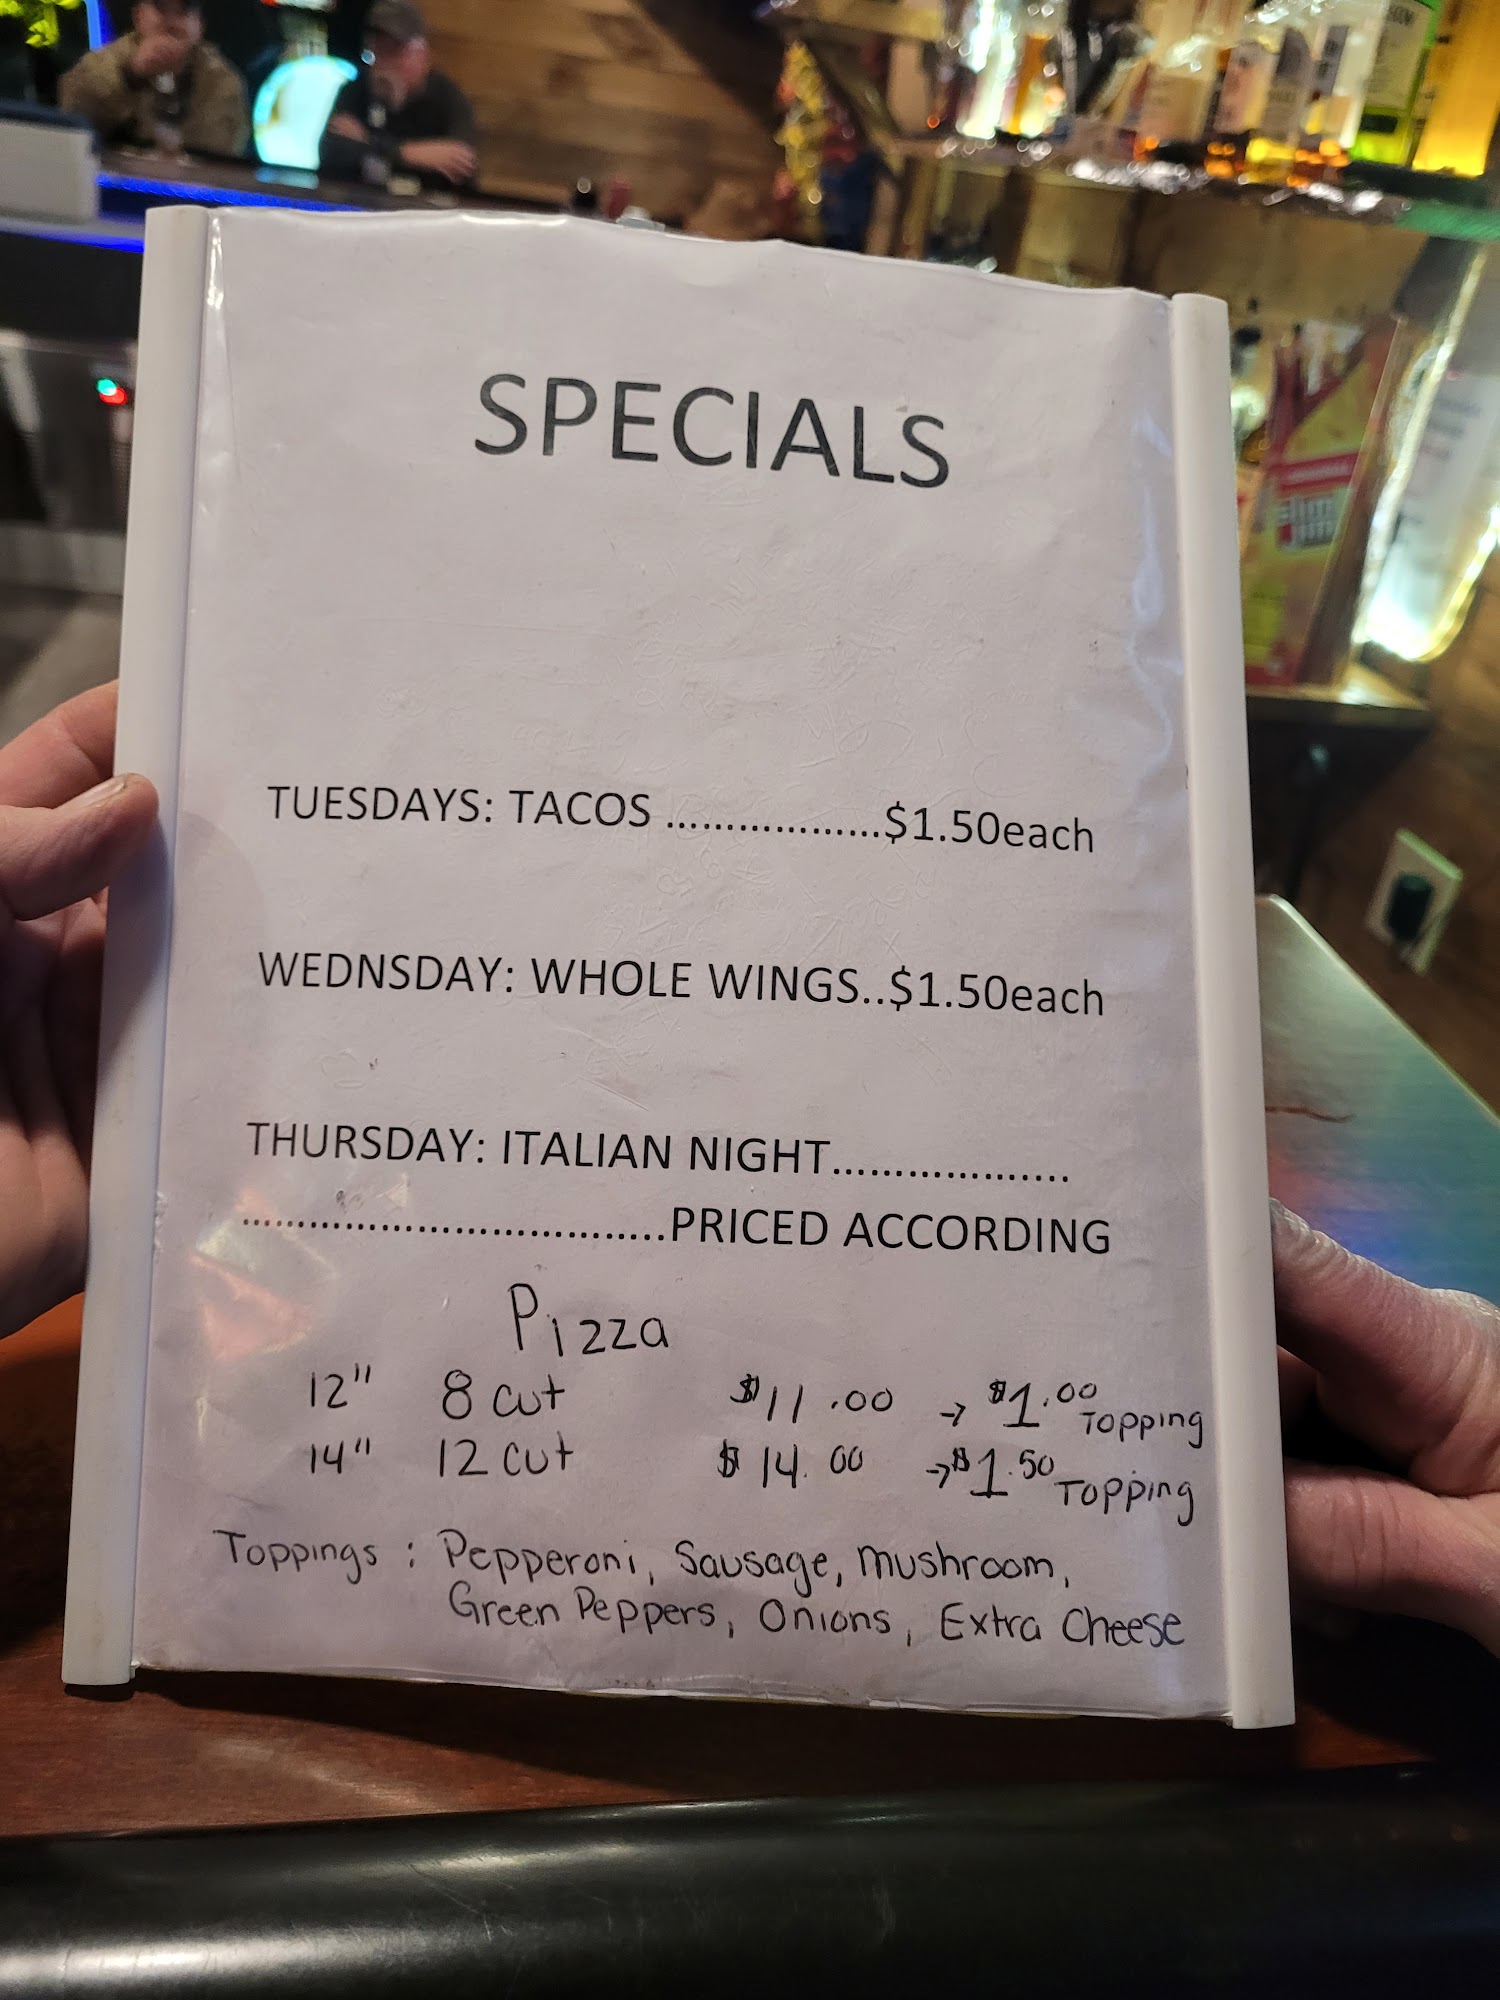 SPECIALS
TUESDAYS: TACOS ..................$1.50each
WEDNSDAY: WHOLE WINGS..$1.50each
THURSDAY: ITALIAN NIGHT...................
...................................PRICED ACCORDING
Pizza
12" 8 cut $11.00 → $1.00 Topping
14" 12 cut $14.00 → $1.50 Topping
Toppings : Pepperoni, Sausage, mushroom,
Green Peppers, Onions, Extra Cheese